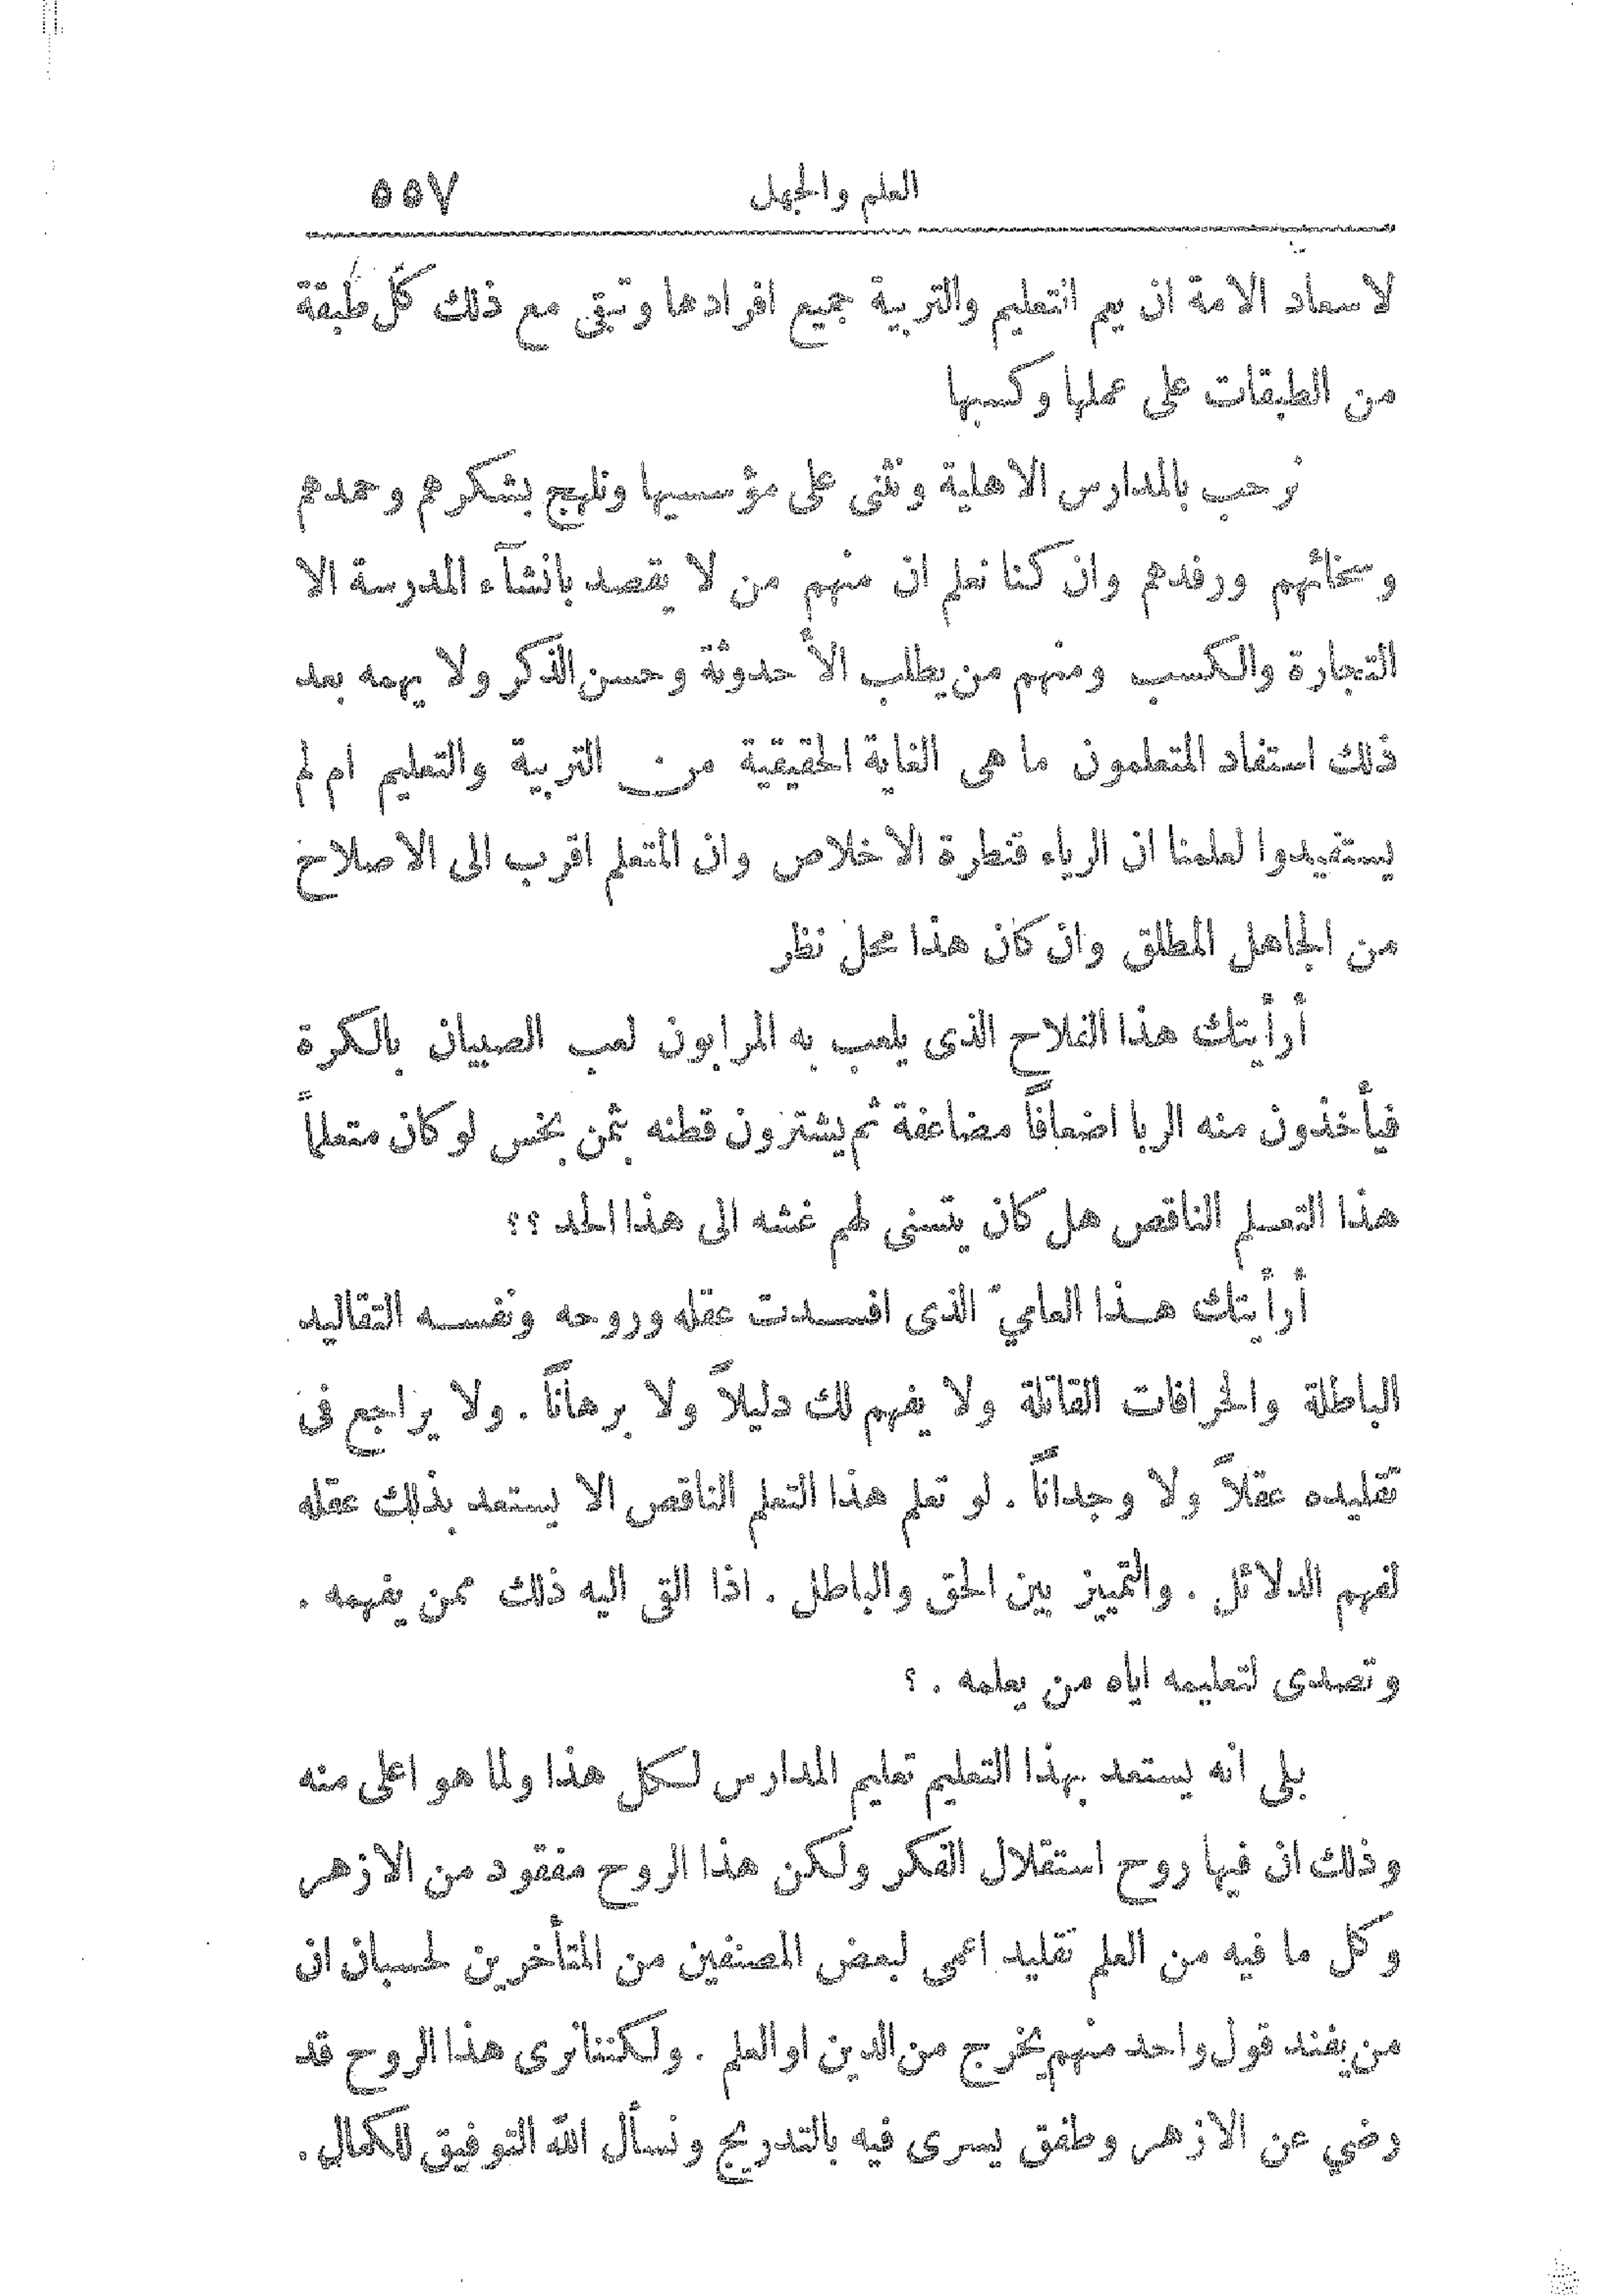 العلم والجهل ٥٥٧
لاسعاد الامة ان يعم التعليم والتربية جميع افرادها وتبقى مع ذلك كل طبقة
من الطبقات على عملها وكسبها
نرحب بالمدارس الاهلية ونثنى على مؤسسيها ونلهج بشكرهم وحمدهم
وسخائهم ورفدهم وان كنا نعلم ان منهم من لا يقصد بانشآء المدرسة الا
التجارة والكسب ومنهم من يطلب الأحدوثة وحسن الذكر ولا يهمه بعد
ذلك استفاد المتعلمون ما هى الغاية الحقيقية من التربية والتعليم ام لم
يستفيدوا لعلمنا ان الرياء قنطرة الاخلاص وان المتعلم اقرب الى الاصلاح
من الجاهل المطلق وان كان هذا محل نظر
أرأيتك هذا الفلاح الذى يلعب به المرابون لعب الصبيان بالكرة
فيأخذون منه الربا اضعافاً مضاعفة ثم يشترون قطنه بثمن بخس لو كان متعلماً
هذا التعلم الناقص هل كان يتسنى لهم غشه الى هذا الحد ؟؟
أرأيتك هذا العاميّ الذى افسدت عقله وروحه ونفسه التقاليد
الباطلة والخرافات القاتلة ولا يفهم لك دليلاً ولا برهاناً . ولا يراجع فى
تقليده عقلاً ولا وجداناً . لو تعلم هذا التعلم الناقص الا يستعد بذلك عقله
لفهم الدلائل . والتمييز بين الحق والباطل . اذا القى اليه ذلك ممن يفهمه .
وتصدى لتعليمه اياه من يعلمه . ؟
بلى انه يستعد بهذا التعليم تعليم المدارس لكل هذا ولما هو اعلى منه
وذلك ان فيها روح استقلال الفكر ولكن هذا الروح مفقود من الازهر
وكل ما فيه من العلم تقليد اعمى لبعض المصنفين من المتأخرين لحسبان ان
من يفند قول واحد منهم يخرج من الدين او العلم . ولكننا نرى هذا الروح قد
رضي عن الازهر وطفق يسرى فيه بالتدريج ونسأل الله التوفيق للكمال .